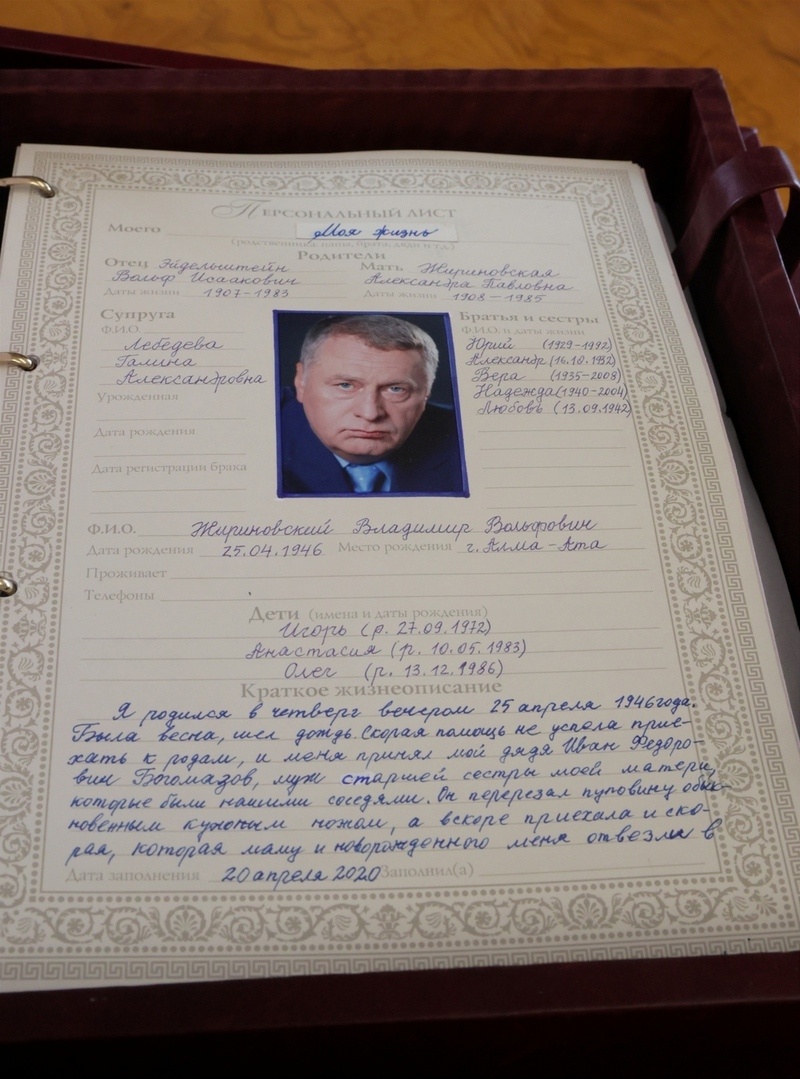 Персональный лист
Моего Моя жизнь
(родственника, папы, брата, дяди и т.д.)
Родители
Отец Эйдельштейн Мать Жириновская
Вольф Исаакович Александра Павловна
Даты жизни 1907-1983 Даты жизни 1908-1985
Супруга
Ф.И.О.
Лебедева
Галина
Александровна
Урожденная
Дата рождения
Дата регистрации брака
Братья и сестры
Ф.И.О. и даты жизни
Юрий (1929-1992)
Александр (16.10.1932)
Вера (1935-2008)
Надежда (1940-2004)
Любовь (13.09.1942)
Ф.И.О. Жириновский Владимир Вольфович
Дата рождения 25.04.1946 Место рождения г. Алма-Ата
Проживает
Телефоны
Дети (имена и даты рождения)
Игорь (р. 27.09.1972)
Анастасия (р. 10.05.1983)
Олег (р. 13.12.1986)
Краткое жизнеописание
Я родился в четверг вечером 25 апреля 1946 года.
Была весна, шел дождь. Скорая помощь не успела прие-
хать к родам, и меня принял мой дядя Иван Федоро-
вич Богомазов, муж старшей сестры моей матери,
которые были нашими соседями. Он перерезал пуповину обык-
новенным кухоным ножом, а вскоре приехала и ско-
рая, которая маму и новорожденного меня отвезла в
Дата заполнения 20 апреля 2020 Заполнил(а)